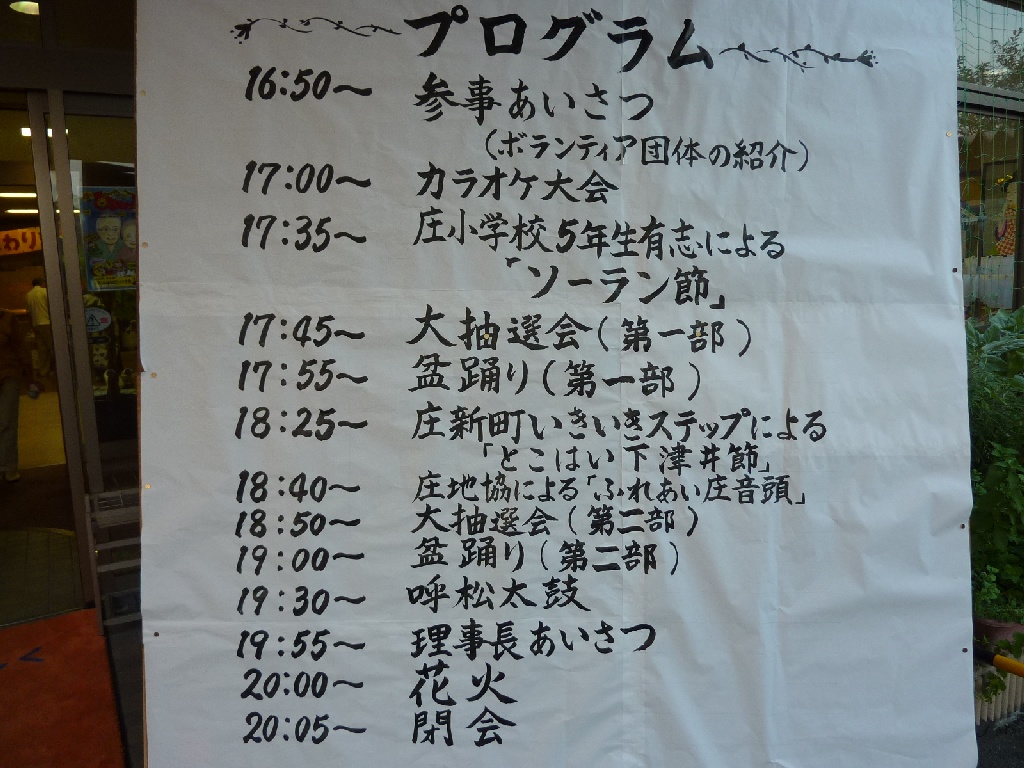 プログラム
16:50〜 参事あいさつ
(ボランティア団体の紹介)
17:00〜 カラオケ大会
17:35〜 庄小学校5年生有志による
「ソーラン節」
17:45〜 大抽選会(第一部)
17:55〜 盆踊り(第一部)
18:25〜 庄新町いきいきステップによる
「とこはい下津井節」
18:40〜 庄地協による「ふれあい庄音頭」
18:50〜 大抽選会(第二部)
19:00〜 盆踊り(第二部)
19:30〜 呼松太鼓
19:55〜 理事長あいさつ
20:00〜 花火
20:05〜 閉会